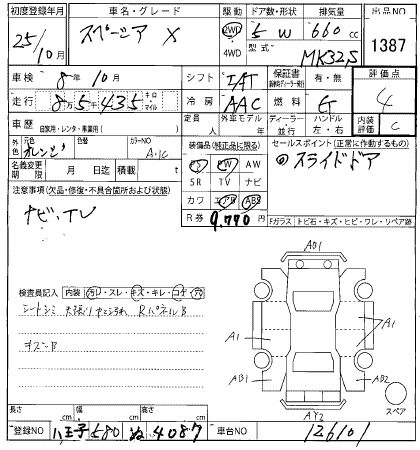 初度登録年月 車名・グレード 駆動 ドア数・形状 排気量 出品NO
25/10月 スペーシア X 2WD 4WD 5 W 660 cc 1387
型式 MK32S
車検 8年10月 シフト IAT 保証書 有・無 評価点
走行 8万5千435 キロ マイル 冷房 AAC 燃料 G 4
車歴 自家用・レンタ・事業用( ) 定員 人 外車モデル 年 ディーラー 並行 ハンドル 左・右 内装評価 C
外色 元色 オレンジ 色替 カラーNO 装備品(純正品に限る) セールスポイント(正常に作動するもの)
名義変更期限 月 日迄 積載 t PW AW ◎スライドドア
SR TV ナビ
注意事項(欠品・修復・不具合箇所および状態) カワ エアB ABS
ナビ、TV R券 9,770 Fガラス トビ石・キズ・ヒビ・ワレ・リペア跡
AD1
検査員記入 内装 汚レ・スレ・キズ・キレ・コゲ・穴
シートシミ 天張り
A1 A1
キズ
AB1 AB2
スペア
AY2
長さ cm 幅 cm 高さ cm
登録NO 八王子 580 ぬ 4087 車台NO 126101